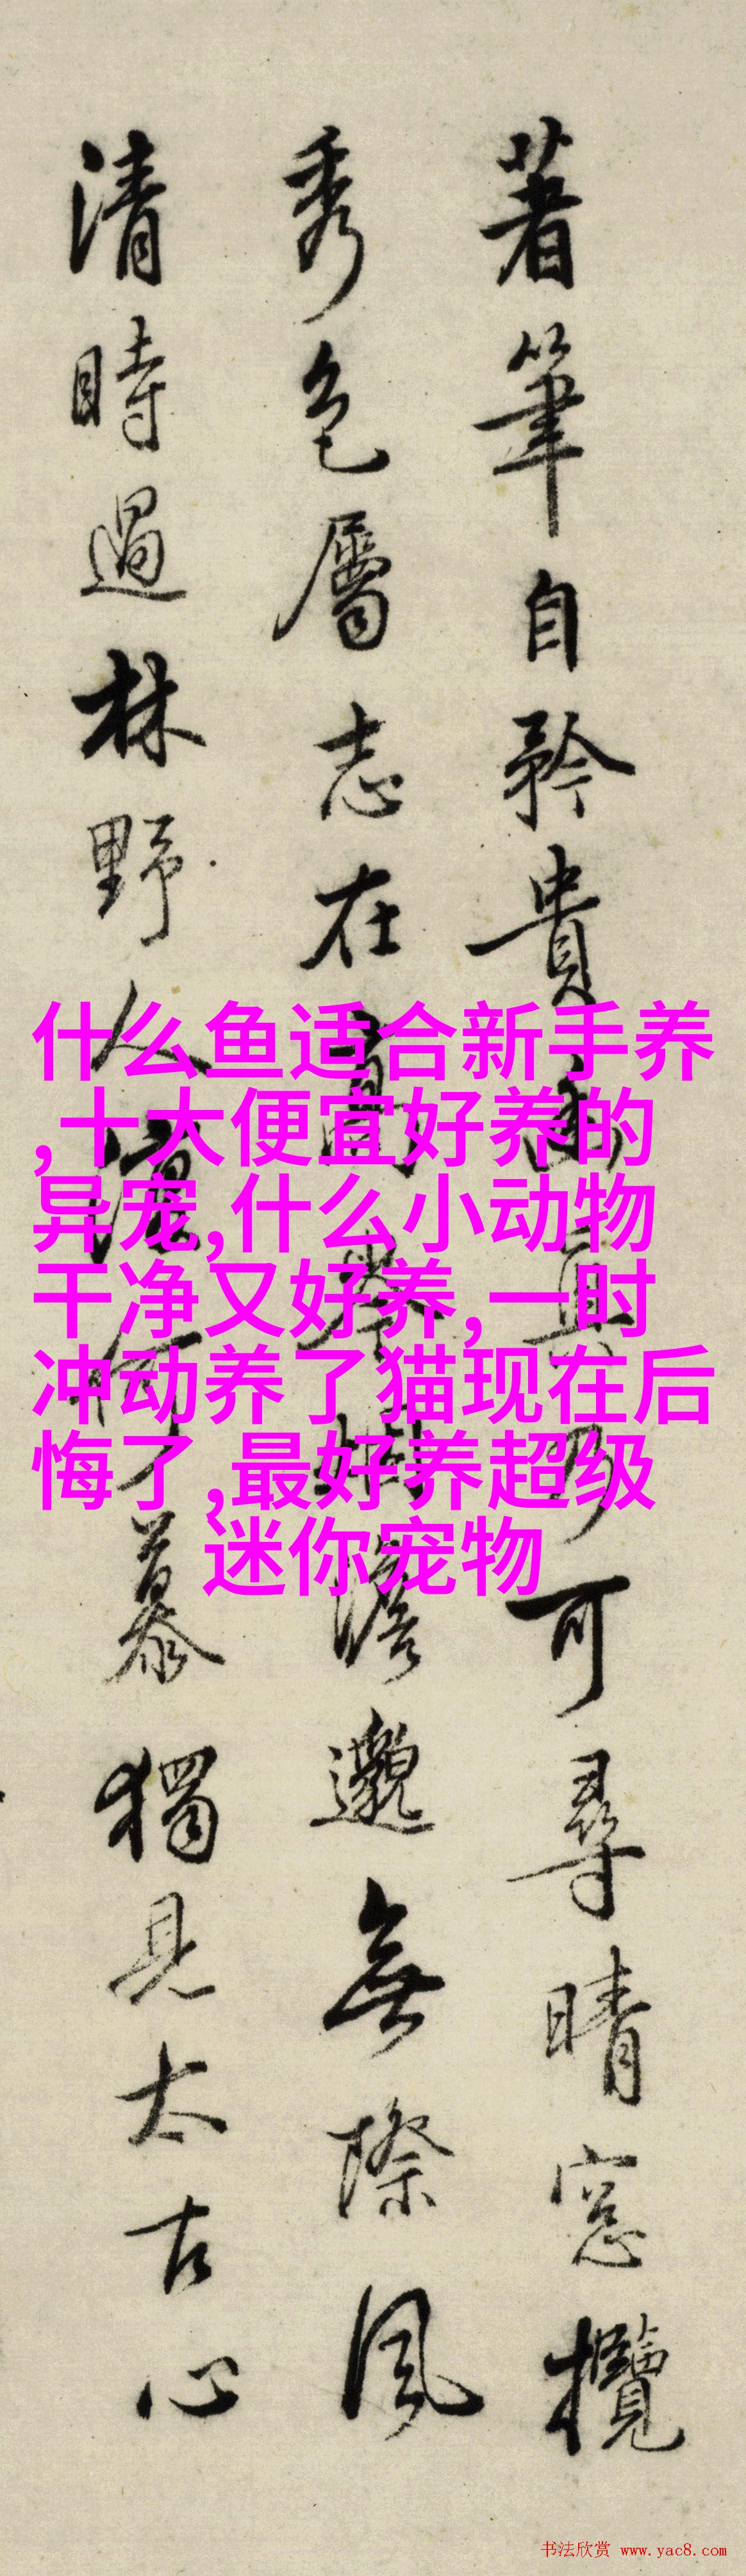 著筆自矜貴
可尋晴窓攬
秀色屬志在
澹邈無際風
清時過林野人
慕獨見太古心
什么鱼适合新手养
,十大便宜好养的
异宠,什么小动物
干净又好养,一时
冲动养了猫现在后
悔了,最好养超级
迷你宠物
书法欣赏 www.yac8.com